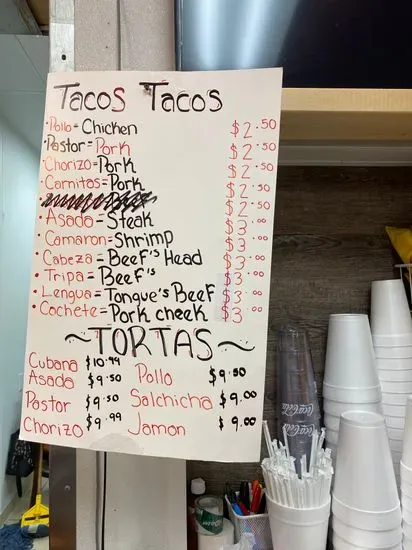 Tacos Tacos
• Pollo = Chicken $2.50
• Pastor = Pork $2.50
• Chorizo = Pork $2.50
• Carnitas = Pork $2.50
$2.50
• Asada = Steak $3.00
• Camaron = Shrimp $3.00
• Cabeza = Beef's Head $3.00
• Tripa = Beef's $3.00
• Lengua = Tongue's Beef $3.00
• Cochete = Pork cheek $3.00
~TORTAS~
Cubana $10.99
Asada $9.50 Pollo $9.50
Pastor $9.50 Salchicha $9.00
Chorizo $9.99 Jamon $9.00
Coca-Cola